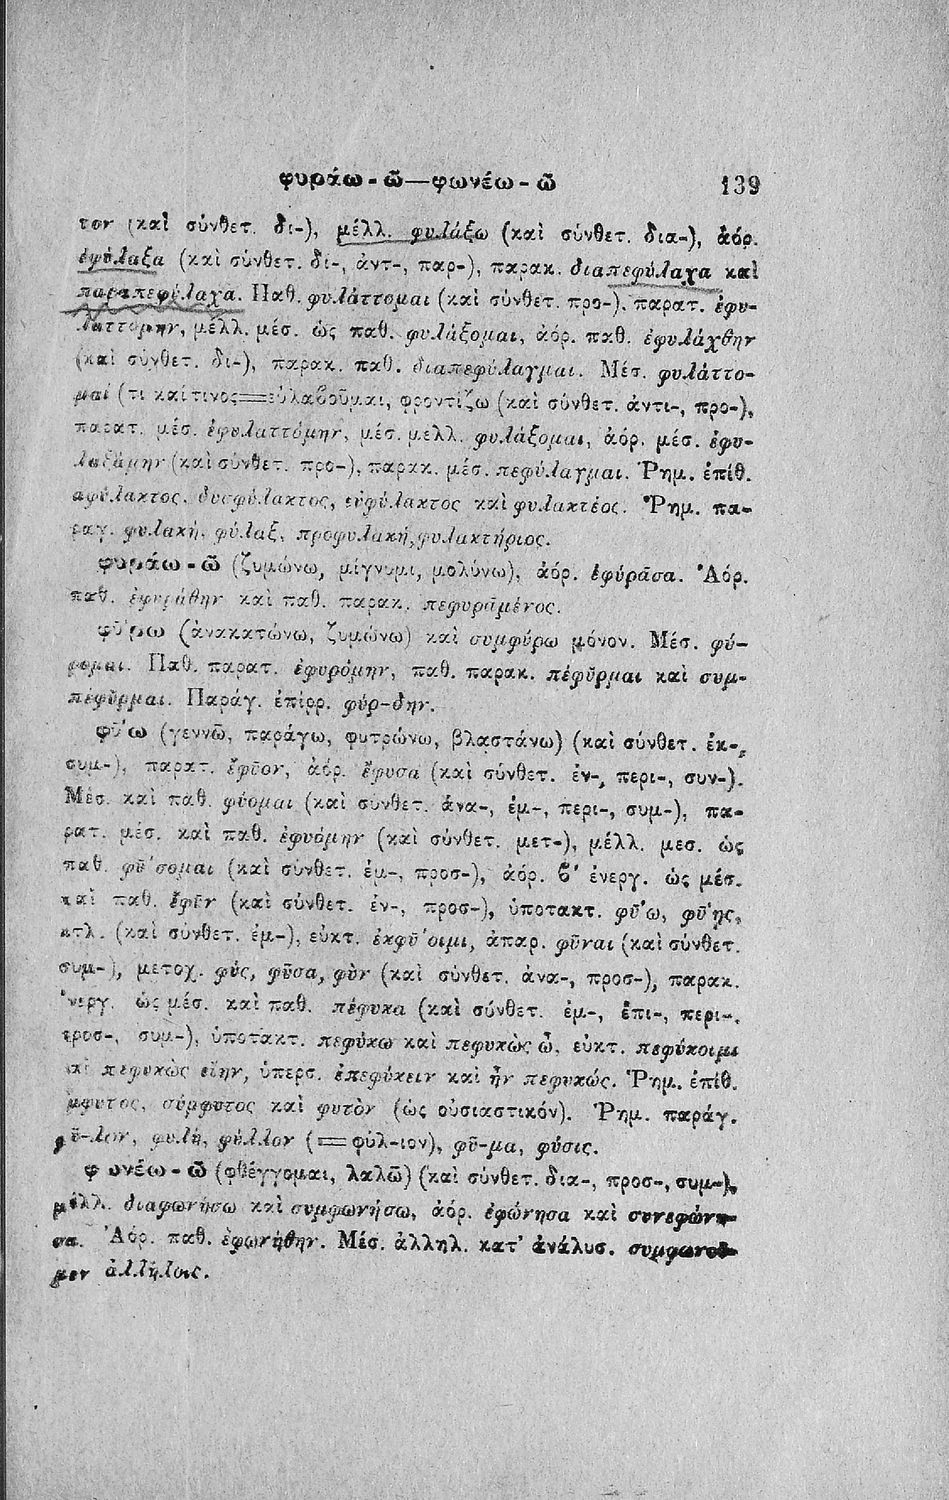 φυράω - ῶ—φωνέω - ῶ 139
τον (καὶ σύνθετ. δι-), μέλλ. φυλάξω (καὶ σύνθετ. δια-), ἀόρ.
ἐφύλαξα (καὶ σύνθετ. δι-, ἀντ-, παρ-), παρακ. διαπεφύλαχα καὶ
παραπεφύλαχα. Παθ. φυλάττομαι (καὶ σύνθετ. προ-), παρατ. ἐφυ-
λαττόμην, μέλλ. μέσ. ὡς παθ. φυλάξομαι, ἀόρ. παθ. ἐφυλάχθην
(καὶ σύνθετ. δι-), παρακ. παθ. διαπεφύλαγμαι. Μέσ. φυλάττο-
μαί (τι καί τινος=εὐλαβοῦμαι, φροντίζω (καὶ σύνθετ. ἀντι-, προ-),
παρατ. μέσ. ἐφυλαττόμην, μέσ. μελλ. φυλάξομαι, ἀόρ. μέσ. ἐφυ-
λαξάμην (καὶ σύνθετ. προ-), παρακ. μέσ. πεφύλαγμαι. Ῥημ. ἐπίθ.
αφύλακτος, δυσφύλακτος, εὐφύλακτος καὶ φυλακτέος. Ῥημ. πα-
ραγ. φυλακή, φύλαξ, προφυλακή, φυλακτήριος.
φυράω - ῶ (ζυμώνω, μίγνυμι, μολύνω), ἀόρ. ἐφύρᾶσα. Ἀόρ.
παθ. ἐφυράθην καὶ παθ. παρακ. πεφυρᾱμένος.
φῡ́ρω (ἀνακατώνω, ζυμώνω) καὶ συμφύρω μόνον. Μέσ. φύ-
ρομαι. Παθ. παρατ. ἐφυρόμην, παθ. παρακ. πέφῡρμαι καὶ συμ-
πέφῡρμαι. Παράγ. ἐπίρρ. φύρ-δην.
φῡ́ω (γεννῶ, παράγω, φυτρώνω, βλαστάνω) (καὶ σύνθετ. ἐκ-,
συμ-), παρατ. ἔφῡον, ἀόρ. ἔφυσα (καὶ σύνθετ. ἐν-, περι-, συν-).
Μέσ. καὶ παθ. φύομαι (καὶ σύνθετ. ἀνα-, ἐμ-, περι-, συμ-), πα-
ρατ. μέσ. καὶ παθ. ἐφυόμην (καὶ σύνθετ. μετ-), μέλλ. μεσ. ὡς
παθ. φῡ́σομαι (καὶ σύνθετ. ἐμ-, προσ-), ἀόρ. β' ἐνεργ. ὡς μέσ.
καὶ παθ. ἔφῡν (καὶ σύνθετ. ἐν-, προσ-), ὑποτακτ. φῡ́ω, φῡ́ῃς,
κτλ. (καὶ σύνθετ. ἐμ-), εὐκτ. ἐκφῡ́οιμι, ἀπαρ. φῦναι (καὶ σύνθετ.
συμ-), μετοχ. φύς, φῦσα, φὺν (καὶ σύνθετ. ἀνα-, προσ-), παρακ.
ἐνεργ. ὡς μέσ. καὶ παθ. πέφυκα (καὶ σύνθετ. ἐμ-, ἐπι-, περι-,
προσ-, συμ-), ὑποτακτ. πεφύκω καὶ πεφυκὼς ὦ, εὐκτ. πεφύκοιμι
καὶ πεφυκὼς εἴην, ὑπερσ. ἐπεφύκειν καὶ ἦν πεφυκώς. Ῥημ. ἐπίθ.
ἔμφυτος, σύμφυτος καὶ φυτὸν (ὡς οὐσιαστικόν). Ῥημ. παράγ.
φῦ-λον, φυλή, φύλλον (=φύλ-ιον), φῦ-μα, φύσις.
φωνέω - ῶ (φθέγγομαι, λαλῶ) (καὶ σύνθετ. δια-, προσ-, συμ-),
μέλλ. διαφωνήσω καὶ συμφωνήσω, ἀόρ. ἐφώνησα καὶ συνεφώνη-
σα. Ἀόρ. παθ. ἐφωνήθην. Μέσ. ἀλληλ. κατ' ἀνάλυσ. συμφωνοῦ-
μεν ἀλλήλοις.